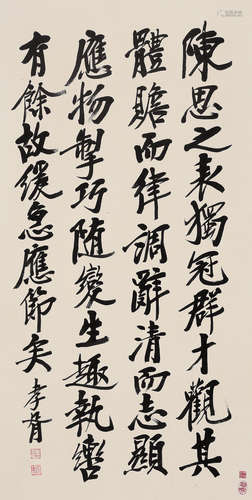 陳思之表獨冠群才觀其
體贍而律調辭清而志顯
應物掣巧随變生趣執轡
有餘故緩急應節矣 李胥